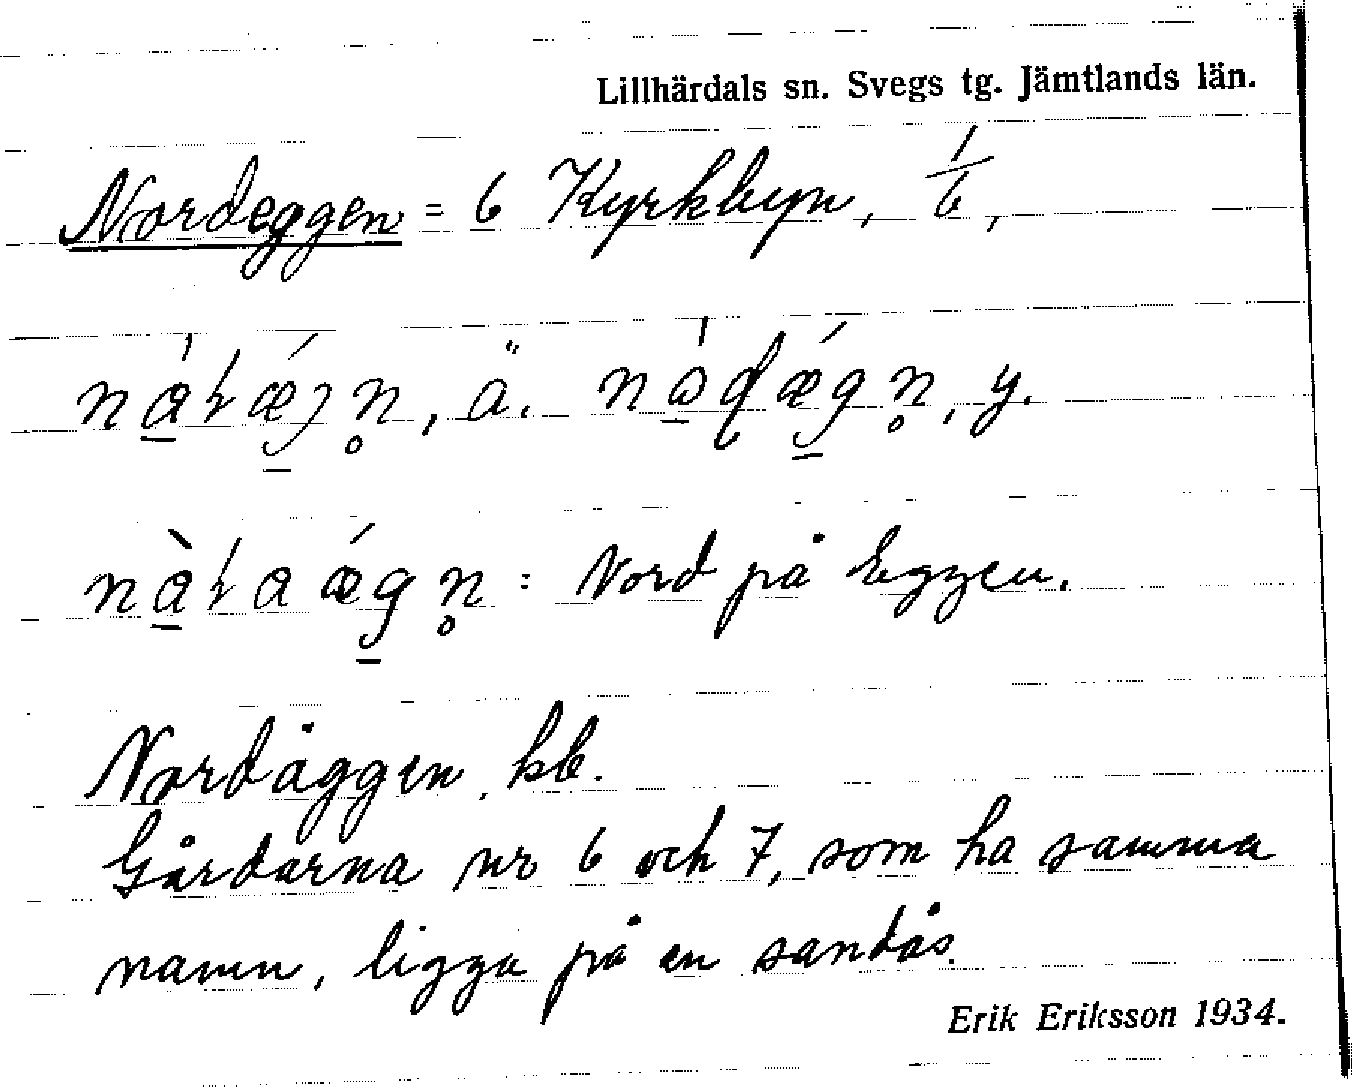 Lillhärdals sn. Svegs tg. Jämtlands län.
Nordeggen = 6 Kyrkbyn, 1/6,
ä. y.
= Nord på Eggen.
Nordäggen, kb.
Gårdarna nr 6 och 7, som ha samma
namn, ligga på en sandås.
Erik Eriksson 1934.